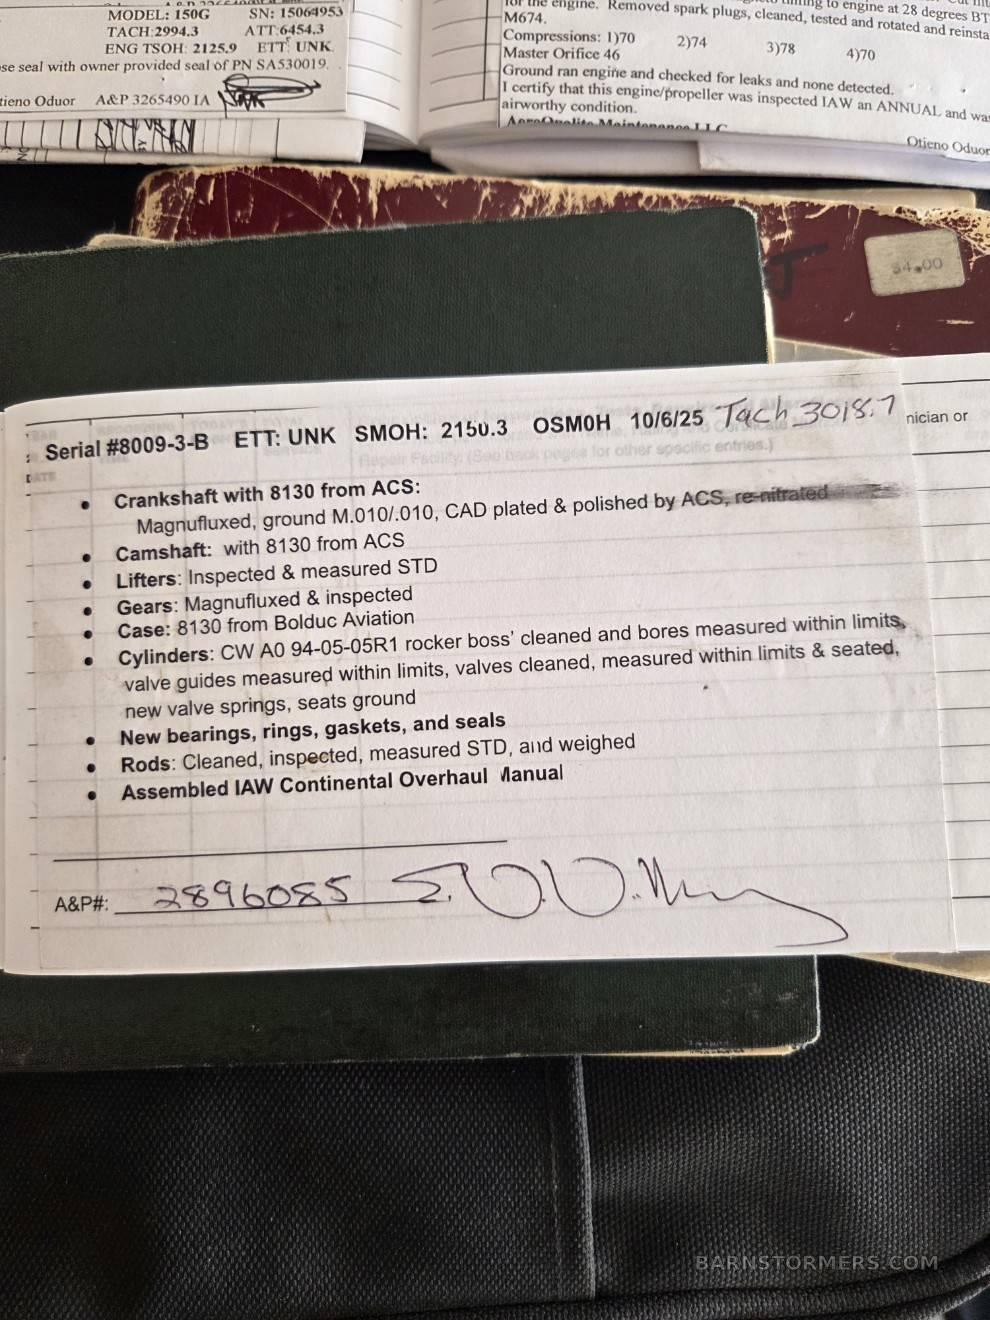 MODEL: 150G SN: 15064953
TACH:2994.3 ATT:6454.3
ENG TSOH: 2125.9 ETT: UNK.
se seal with owner provided seal of PN SA530019.
tieno Oduor A&P 3265490 IA
for the engine. Removed spark plugs, cleaned, tested and rotated and reinsta
to engine at 28 degrees BT
M674.
Compressions: 1)70 2)74 3)78 4)70
Master Orifice 46
Ground ran engine and checked for leaks and none detected.
I certify that this engine/propeller was inspected IAW an ANNUAL and was
airworthy condition.
AeroQuality Maintenance LLC
Otieno Oduor
$4.00
nician or
Serial #8009-3-B ETT: UNK SMOH: 2150.3 OSM0H 10/6/25 Tach 3018.7
Repair Facility. (See back pages for other specific entries.)
DATE
• Crankshaft with 8130 from ACS:
Magnufluxed, ground M.010/.010, CAD plated & polished by ACS, re-nitrated
• Camshaft: with 8130 from ACS
• Lifters: Inspected & measured STD
• Gears: Magnufluxed & inspected
• Case: 8130 from Bolduc Aviation
• Cylinders: CW A0 94-05-05R1 rocker boss' cleaned and bores measured within limits,
valve guides measured within limits, valves cleaned, measured within limits & seated,
new valve springs, seats ground
• New bearings, rings, gaskets, and seals
• Rods: Cleaned, inspected, measured STD, and weighed
• Assembled IAW Continental Overhaul Manual
A&P#: 2896085
BARNSTORMERS.COM